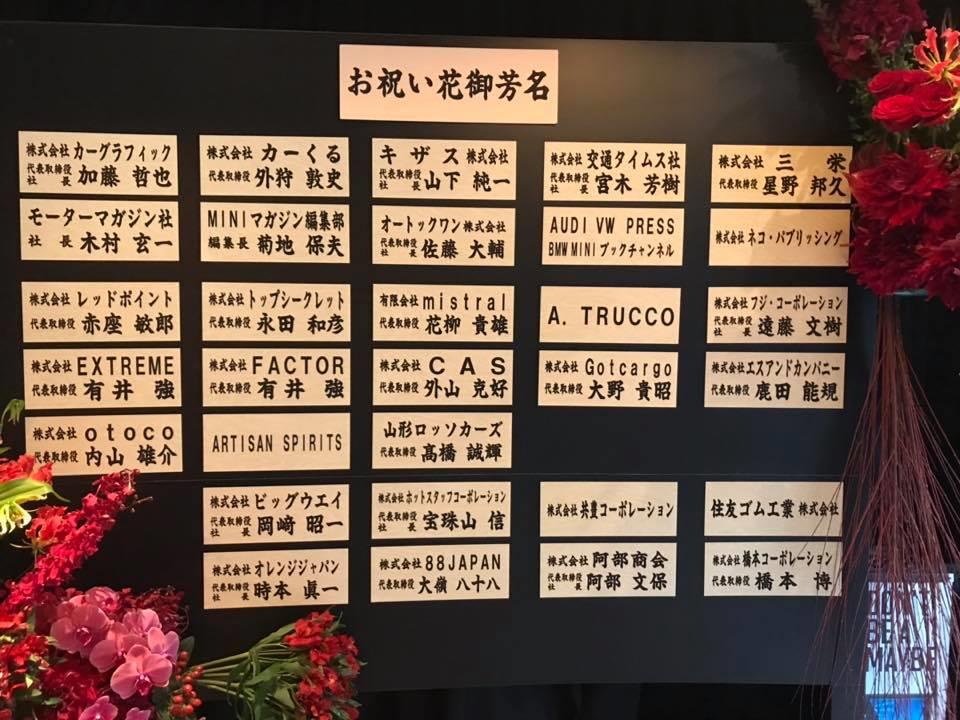 お祝い花御芳名
株式会社 カーグラフィック
代表取締役社長 加藤 哲也
株式会社 カーくる
代表取締役 外狩 敦史
キザス 株式会社
代表取締役社長 山下 純一
株式会社 交通タイムス社
代表取締役社長 宮木 芳樹
株式会社 三 栄
代表取締役 星野 邦久
モーターマガジン社
社 長 木村 玄一
MINIマガジン編集部
編集長 菊地 保夫
オートックワン株式会社
代表取締役社長 佐藤 大輔
AUDI VW PRESS
BMW MINI ブックチャンネル
株式会社 ネコ・パブリッシング
株式会社 レッドポイント
代表取締役 赤座 敏郎
株式会社 トップシークレット
代表取締役 永田 和彦
有限会社 mistral
代表取締役 花柳 貴雄
A. TRUCCO
株式会社 フジ・コーポレーション
代表取締役社長 遠藤 文樹
株式会社 EXTREME
代表取締役 有井 強
株式会社 FACTOR
代表取締役 有井 強
株式会社 CAS
代表取締役 外山 克好
株式会社 Gotcargo
代表取締役 大野 貴昭
株式会社 エスアンドカンパニー
代表取締役 鹿田 能規
株式会社 otoco
代表取締役 内山 雄介
ARTISAN SPIRITS
山形ロッソカーズ
代表取締役 髙橋 誠輝
株式会社 ビッグウエイ
代表取締役社長 岡﨑 昭一
株式会社 ホットスタッフコーポレーション
代表取締役社長 宝珠山 信
株式会社 共豊コーポレーション
住友ゴム工業 株式会社
株式会社 オレンジジャパン
代表取締役社長 時本 眞一
株式会社 88JAPAN
代表取締役 大嶺 八十八
株式会社 阿部商会
代表取締役社長 阿部 文保
株式会社 橋本コーポレーション
代表取締役 橋本 博
DON'T
BE A
MAYBE